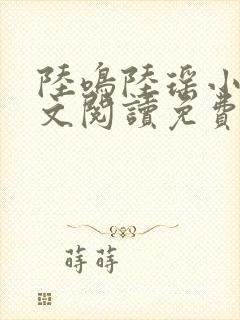 陸鳴陸瑶小
文閱讀免費
蒔蒔